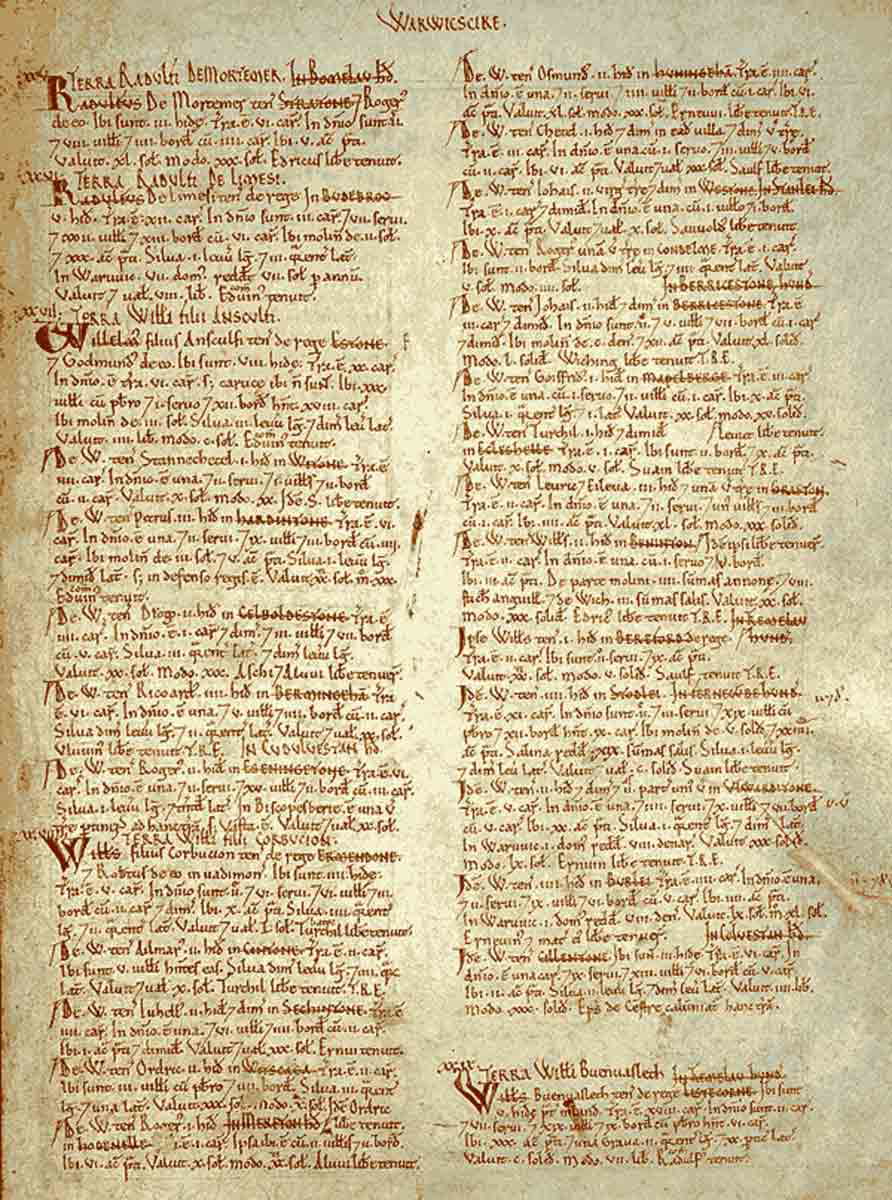 WARWICSCIRE.
XXV. TERRA RADULFI DE MORTEMER. In Bomelau hd.
Radulfus De Mortemer ten STRATONE 7 Roger
de eo. Ibi sunt .iii. hidę. Tra .ē. vi. car. In dnio sunt .ii.
7 viii. uitti 7 iii. bord cū .iiii. car. Ibi .v. ac pti.
Valuit .xl. sol. Modo .xxx. sol. Edricus libe tenuit.
XXVI. TERRA RADULFI DE LIMESI.
Radulfus De limesi ten de rege In BUDEBROC
v. hid. Tra .ē. xii. car. In dnio sunt .iii. car. 7 vii. serui.
7 uitti 7 xiii. bord cū .vi. car. Ibi molin de .ii. sol.
7 xxx. ac pti. Silua .i. leuu lg. 7 .iii. qrent lat.
In Waruuic .vii. dom. redde .vii. sol p annu.
Valuit 7 ual .viii. lib. Eduin tenuit.
XXVII. TERRA Willi filii ANSCULFI.
Willelm filius Ansculfi ten de rege ESTONE.
7 Godmund de eo. Ibi sunt .viii. hidę. Tra .ē. xx. car.
In dnio .ē. tra .vi. car. s; carucę ibi n sunt. Ibi .xxx.
uitti cū pbro 7 .i. seruo 7 xii. bord hnt .xviii. car.
Ibi molin de .iii. sol. Silua .iii. leuu lg. 7 dim leu lat.
Valuit .iiii. lib. Modo .c. sol. Eduin tenuit.
De .W. ten Stannechetel .i. hid in WITONE. Tra .ē.
iiii. car. In dnio .ē. una. 7 ii. serui. 7 i. uitts 7 ii. bord
cū .ii. car. Valuit .x. sol. Modo .xx. Idē .S. libe tenuit.
De .W. ten Petrus .iii. hid in HARDINTONE. Tra .ē. vi.
car. In dnio .ē. una. 7 ii. serui. 7 ix. uitti 7 iii. bord cū .iiii.
car. Ibi molin de .iii. sol. 7 v. ac pti. Silua .i. leuu lg.
7 dimid lat. s; in defenso regis .ē. Valuit .xx. sol. m .xxx.
Eduin tenuit.
De .W. ten Drogo .ii. hid in CELBOLDESTONE. Tra .ē.
iiii. car. In dnio .ē. i. car 7 dim. 7 iii. uitti 7 vii. bord
cū .v. car. Silua .iii. qrent lat. 7 dim leuu lg.
Valuit .xx. sol. Modo .xxx. Aschi 7 Aluui libe tenuer.
De .W. ten Ricoard .iiii. hid in BERMINGEHĀ. Tra
ē. vi. car. In dnio .ē. una. 7 v. uitti 7 iiii. bord cū .ii. car.
Silua dim leuu lg. 7 ii. qrent lat. Valuit 7 ual .xx. sol.
Vluuin libe tenuit T.R.E. IN CUDULVESTAN hd
De .W. ten Roger .ii. hid in ESENINGETONE. Tra .ē. vi.
car. In dnio .ē. una. 7 ii. serui. 7 xv. uitti 7 ii. bord cū
Silua .i. leuu lg. 7 tntd lat. In Biscopesberie .ē. una v
tre ptinens ad hanc tra. s; wasta .ē. Valuit 7 ual .xx. sol.
XXVIII. TERRA Willi filii CORBUCION.
Witts filius Corbucion ten de rege ERMENDONE.
7 Robtus de eo in uadimon. Ibi sunt .iiii. hidę.
Tra .ē. v. car. In dnio sunt .ii. 7 vi. serui. 7 vi. uitti 7 iii.
bord cū .ii. car 7 dim. Ibi .x. ac pti. Silua .iii. qrent
lg. 7 ii. qrent lat. Valuit 7 ual .l. sol. Turchil libe tenuit.
De .W. ten Ailmar .ii. hid in Tra .ē. ii. car.
Ibi sunt .v. uitti hntes eas. Silua dim leuu lg. 7 iiii. qrc
lat. Valuit 7 ual .x. sol. Turchil libe tenuit T.R.E.
De .W. ten Iuhell .ii. hid 7 dim in SECHINTONE. Tra .ē.
iii. car. In dnio .ē. una. 7 vi. uitti 7 iiii. bord cū .ii. car.
Ibi .i. ac pti 7 dimid. Valuit 7 ual .xx. sol. Ernui tenuit.
De .W. ten Ordric .ii. hid in Tra .ē. ii. car.
Ibi sunt .iii. uitti cū pbro 7 vii. bord. Silua .iii. qrent
lg. 7 una lat. Valuit .xxx. sol. Modo .x. sol. Idē Ordric
De .W. ten Roger .i. hid In MERETON hd. libe tenuit.
in HODENELLE. Tra .ē. i. car. Ipsa ibi .ē. cū .ii. uittis 7 v. bord.
Ibi .vi. ac pti. Valuit .x. sol. modo .xx. sol. Aluui libe tenuit.
De .W. ten Osmund .ii. hid in HUNINGEHĀ. Tra .ē. iiii. car.
In dnio .ē. una. 7 ii. serui. 7 iiii. uitti 7 ii. bord cū .i. car. Ibi .vi.
ac pti. Valuit .xl. sol. modo .xxx. sol. Erneuui libe tenuit T.R.E.
De .W. ten Chetel .i. hid 7 dim in ead uilla. 7 dim v tre.
Tra .ē. iii. car. In dnio .ē. una cū .i. seruo. 7 iii. uitti 7 v. bord
cū .ii. car. Ibi .vi. ac pti. Valuit 7 ual .xx. sol. Saulf libe tenuit.
De .W. ten Iohais .ii. uirg tre 7 dim in WESTONE. IN STANLEI hd.
Tra .ē. i. car. 7 dimid. In dnio .ē. una cū .i. uitto 7 i. bord.
Ibi .ix. ac pti. Valuit 7 ual .x. sol. Sauuold libe tenuit.
De .W. ten Roger una v tre in CONDELME. Tra .ē. i. car.
Ibi sunt .ii. bord. Silua dim leu lg. 7 iiii. qrent lat. Valuit
v. sol. modo .iii. sol. IN BERRICESTONE HUND.
De .W. ten Johais .ii. hid 7 dim in BERRICESTONE. Tra .ē.
iii. car 7 dimid. In dnio sunt .ii. 7 v. uitti 7 vii. bord cū .i. car
7 dimid. Ibi molin de .c. den. 7 xii. ac pti. Valuit .xl. solid.
Modo .l. solid. Wiching libe tenuit T.R.E.
De .W. ten Goisfrid .i. hid in MAPELBERGE. Tra .ē. vi. car.
In dnio .ē. una cū .i. seruo. 7 ii. uitti cū .i. car. Ibi .x. ac pti.
Silua .i. qrent lg. 7 i. lat. Valuit .xx. sol. modo .xv. solid.
De .W. ten Turchil .i. hid 7 dimid Leuiet libe tenuit.
in ECLESHELLE. Tra .ē. i. car. Ibi sunt .ii. bord. 7 x. ac pti.
Valuit .x. sol. Modo .v. sol. Suain libe tenuit T.R.E.
De .W. ten Leuric 7 Eileua .iii. hid 7 una v tre in GRASTON.
Tra .ē. ii. car. In dnio .ē. una. 7 ii. serui. 7 un uitts 7 ii. bord
cū .i. car. Ibi .iiii. ac pti. Valuit .xl. sol. modo .xxx. solid.
De .W. ten Witts .ii. hid in BENINTON. Idē ipsi libe tenuer.
Tra .ē. ii. car. In dnio .ē. una cū .i. seruo 7 v. bord.
Ibi .iii. ac pti. De parte molini .iiii. sūmas annonę. 7 viii.
stich anguill. 7 de Wich .iii. sūmas salis. Valuit .xx. sol.
Modo .xxx. solid. Edric libe tenuit T.R.E. IN REMELAU
Ipse Witts ten .i. hid in BEREFORD de rege. HUND.
Tra .ē. ii. car. Ibi sunt .ii. serui. 7 ix. ac pti.
Valuit .xx. sol. modo .v. solid. Saulf tenuit T.R.E.
Idē .W. ten .iiii. hid in STODLEI. IN FERNECUBE HUND.
Tra .ē. xi. car. In dnio sunt .ii. 7 iii. serui 7 xix. uitti cū
pbro 7 xii. bord hnt .ix. car. Ibi molin de .v. solid. 7 xxiiii.
ac pti. Salina redd .xix. sūmas salis. Silua .i. leuu lg.
7 dim leu lat. Valuit 7 ual .c. solid. Suain libe tenuit.
Idē .W. ten .ii. hid 7 dim 7 .ii. parte uni v in VLWARDITONE.
Tra .ē. v. car. In dnio .ē. una. 7 iiii. serui. 7 x. uitti 7 vii. bord
cū .v. car. Ibi .xx. ac pti. Silua .i. qrent lg. 7 dim lat.
In Waruuic .i. dom redd .viii. denar. Valuit .xx. solid.
modo .lx. sol. Ernuin libe tenuit T.R.E.
Idē .W. ten .iiii. hid in BURLEI. Tra .ē. iiii. car. In dnio .ē. una.
7 ii. serui. 7 ix. uitti 7 vi. bord cū .iii. car. Ibi .xxx. ac pti.
In Waruuic .i. dom redd .viii. den. Valuit .lx. sol. m .xl. sol.
Erneuin 7 mat ei libe tenuer. IN COLVESTAN hd.
Idē .W. ten CILLENTONE. Ibi sun .iii. hidę. Tra .ē. vi. car. In
dnio .ē. una car. 7 ix. serui. 7 xiii. uitti 7 vi. bord cū .v. car.
Ibi .ii. ac pti. Silua .ii. leuu lg. 7 dim leu lat. Valuit .iiii. lib.
Modo .xxx. solid. Eps de Cestre calūniat hanc tra.
XXIX. TERRA Willi BUENVASLETH. IN REMELAU HUND.
Witts Buenuasleth ten de rege LISTECORNE. Ibi sunt
v. hidę Tra .ē. xviii. car. In dnio sunt .ii. car.
7 vii. serui. 7 xix. uitti 7 ix. bord cū pbro hnt .vi. car.
Ibi .xxx. ac pti. 7 una graua .ii. qrent lg. 7 xx. ptic lat.
Valuit .c. solid. Modo .vii. lib. Radulf tenuit.